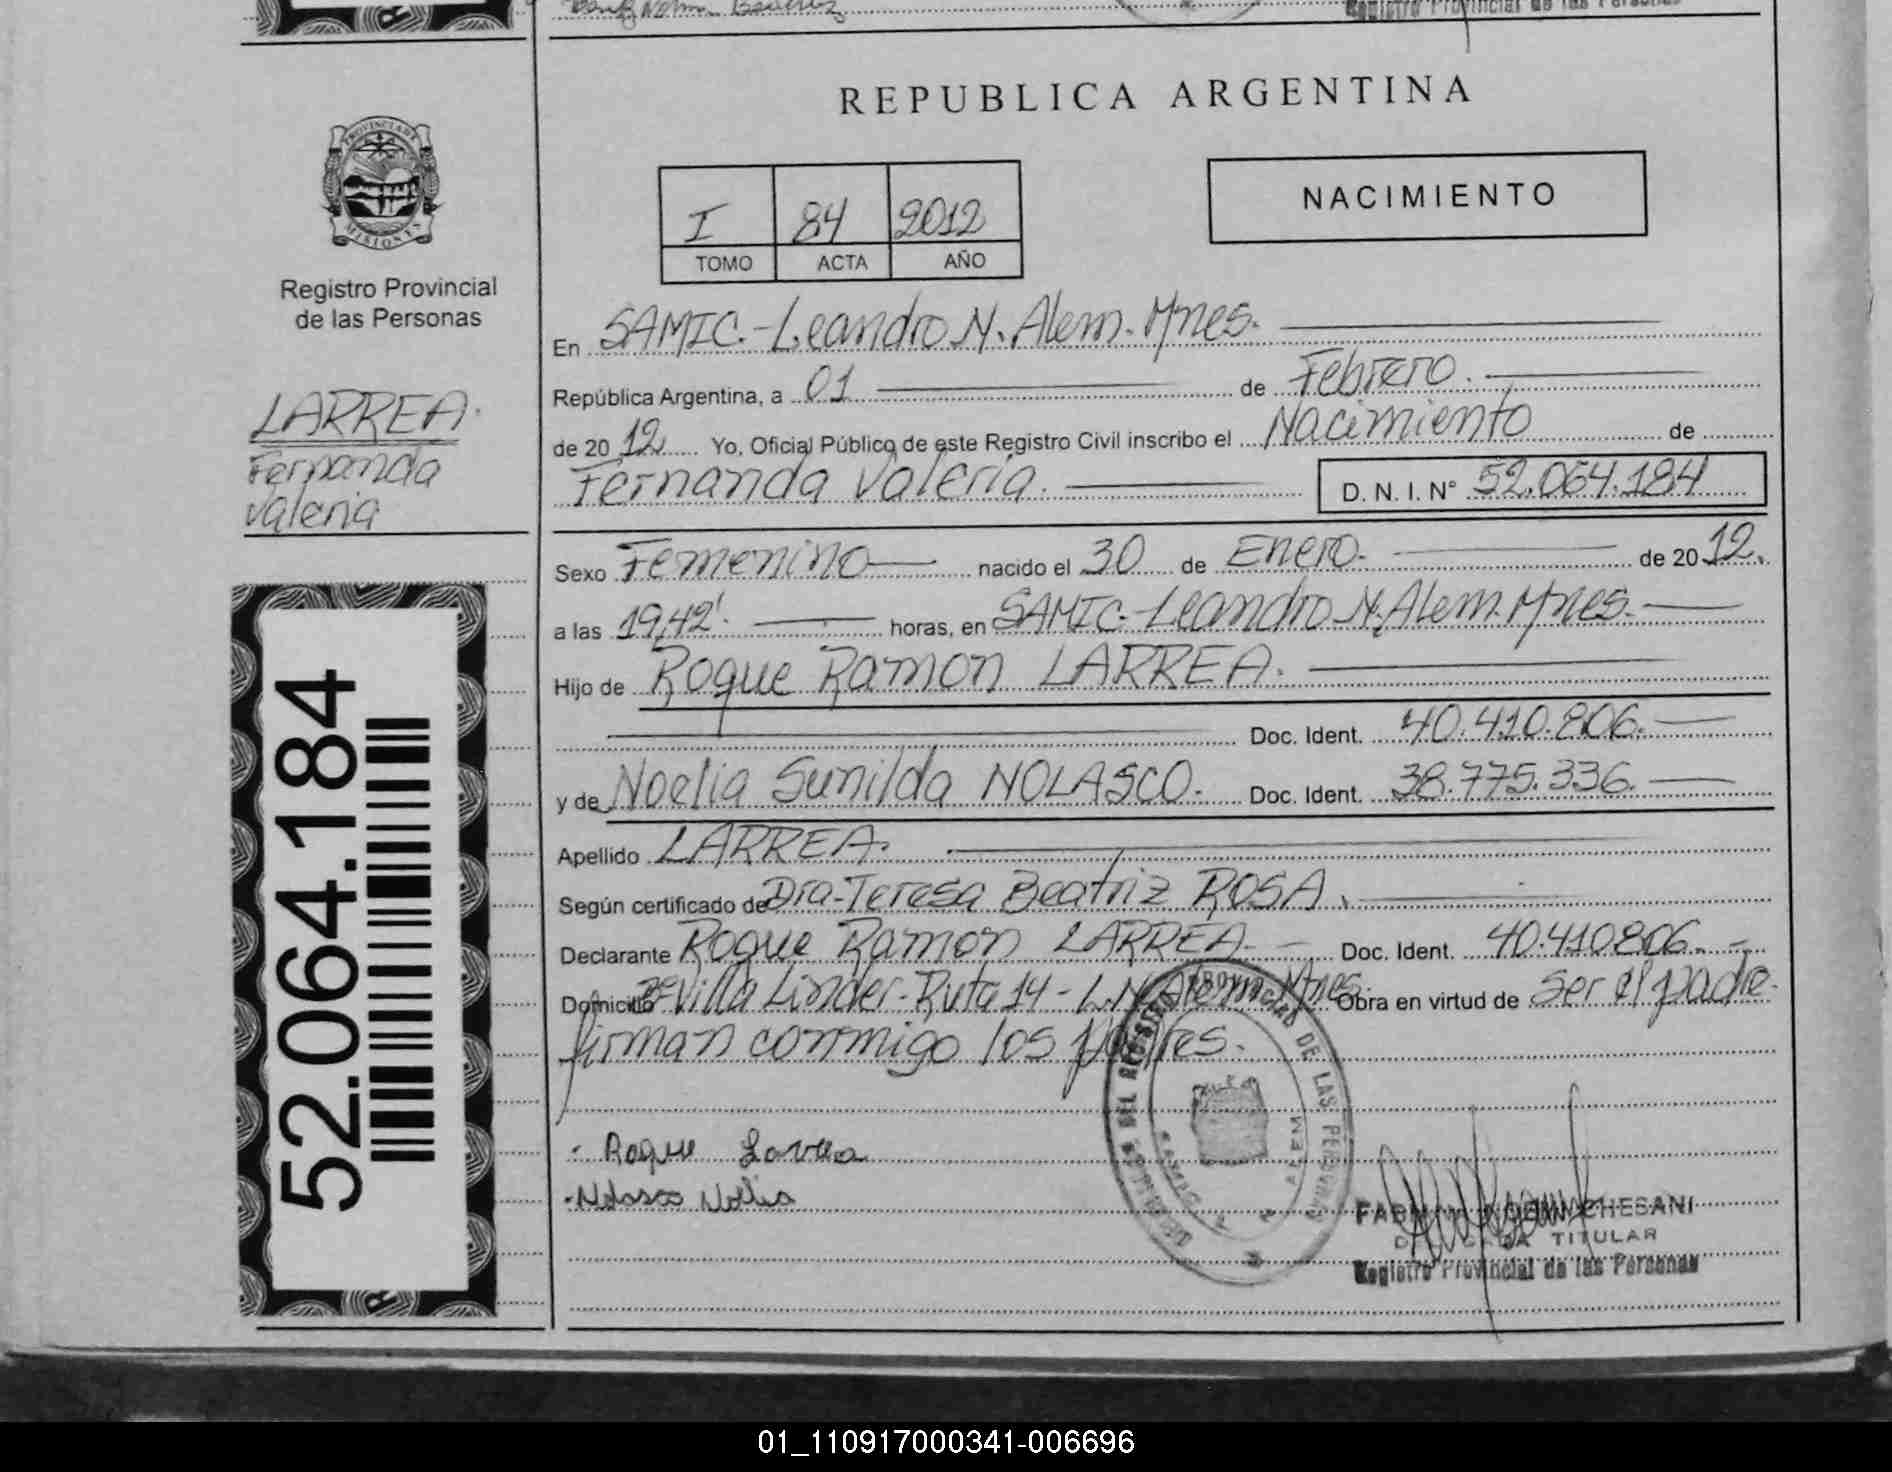 REPUBLICA ARGENTINA
PROVINCIA DE MISIONES
Registro Provincial
de las Personas
LARREA.
Fernanda
Valeria
52.064.184
I 84 2012
TOMO ACTA AÑO
NACIMIENTO
En SAMIC.-Leandro N. Alem. Mnes.
República Argentina, a 01 de Febrero.
de 2012 Yo, Oficial Público de este Registro Civil inscribo el Nacimiento de
Fernanda Valeria. D. N. I. N° 52.064.184
Sexo Femenino nacido el 30 de Enero. de 2012.
a las 19,42'. horas, en SAMIC.-Leandro N. Alem. Mnes.
Hijo de Roque Ramon LARREA.
Doc. Ident. 40.410.806.
y de Noelia Sunilda NOLASCO. Doc. Ident. 38.775.336.
Apellido LARREA.
Según certificado de Dra. Teresa Beatriz ROSA.
Declarante Roque Ramon LARREA. Doc. Ident. 40.410.806.
Domicilio Bº Villa Linder - Ruta 14 - L. N. Alem. Mnes. Obra en virtud de ser el padre.
firman conmigo los padres.
Roque Larrea
Nolasco Noelia
DEL REGISTRO PROVINCIAL DE LAS PERSONAS
N. ALEM
TITULAR
Registro Provincial de las Personas
01_110917000341-006696